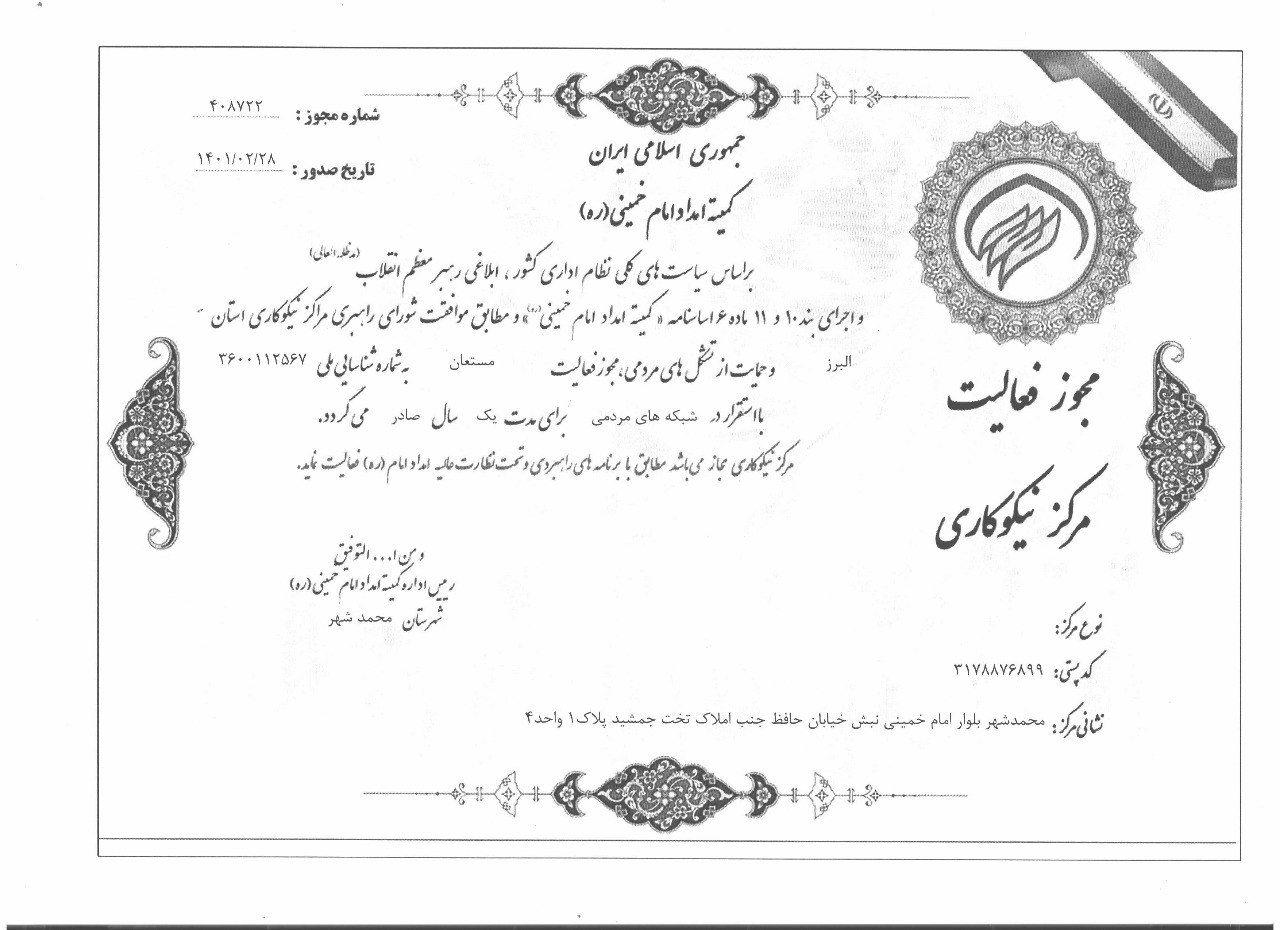 شماره مجوز : ۴۰۸۷۲۲
تاریخ صدور : ۱۴۰۱/۰۲/۲۸
جمهوری اسلامی ایران
کمیته امداد امام خمینی (ره)
براساس سیاست های کلی نظام اداری کشور ، ابلاغی رهبر معظم انقلاب (مدظله العالی)
و اجرای بند ۱۰ و ۱۱ ماده ۶ اساسنامه « کمیته امداد امام خمینی (ره) » و مطابق موافقت شورای راهبری مراکز نیکوکاری استان
البرز و حمایت از تشکل های مردمی، مجوز فعالیت مستعان به شماره شناسایی ملی ۳۶۰۰۱۱۲۵۶۷
با استقرار در شبکه های مردمی برای مدت یک سال صادر می گردد.
مرکز نیکوکاری مجاز می باشد مطابق با برنامه های راهبردی و تحت نظارت عالیه امداد امام (ره) فعالیت نماید.
مجوز فعالیت
مرکز نیکوکاری
و من ا... التوفیق
رییس اداره کمیته امداد امام خمینی (ره)
شهرستان محمد شهر
نوع مرکز :
کد پستی : ۳۱۷۸۸۷۶۸۹۹
نشانی مرکز : محمدشهر بلوار امام خمینی نبش خیابان حافظ جنب املاک تخت جمشید پلاک۱ واحد۴